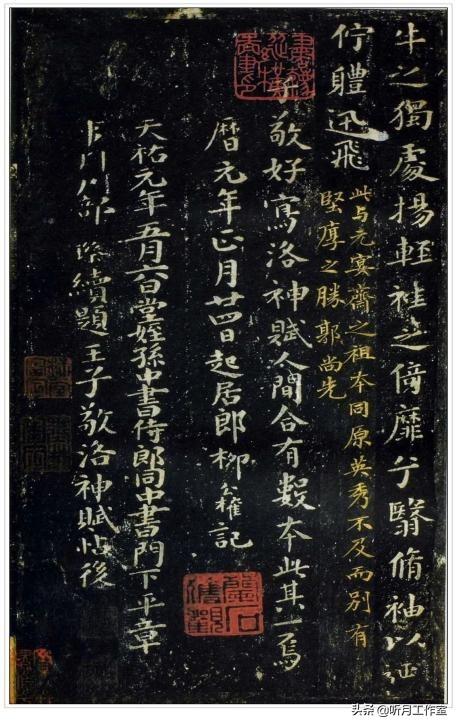 牛之獨處揚輕袿之倚靡兮翳脩袖以延
佇體迅飛
此与元宴齋之祖本同原英秀不及而別有
堅厚之勝郭尚先
子敬好寫洛神賦人間合有數本此其一焉
曆元年正月廿四日起居郎柳公權記
天祐元年五月六日堂姪孫中書侍郎同中書門下平章
事判戶部璨續題王子敬洛神賦帖後
头条 @听月工作室